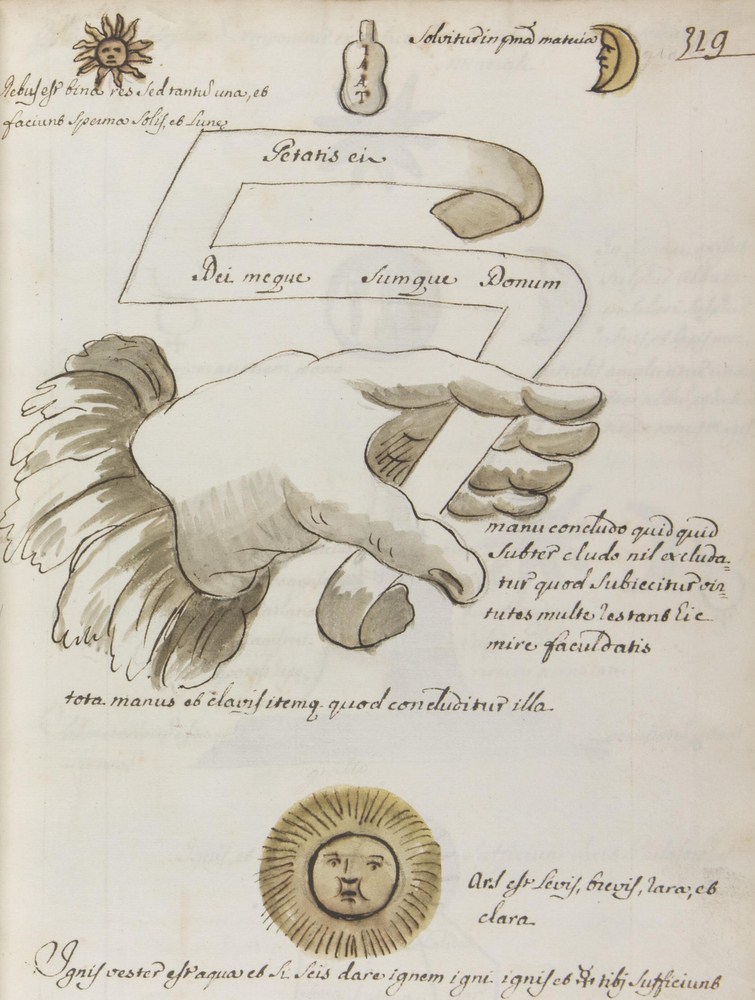 Solvitur in pma materia
319
IAAT
Rebus est bina res sed tantu una, et
faciunt sperma Solis, et Lune
Petatis ei
Dei meque Sumque Donum
manu concludo quid quid
subter cludo nil excluda=
tur quod Subiecitur vir=
tutes multe restant hic
mire facultatis
tota manus et clavis itemq. quod concluditur illa
Ars est Levis, brevis, rara, et
clara
Ignis vester est aqua et Si Scis dare ignem igni ignis et ☿ tibj Sufficiunt